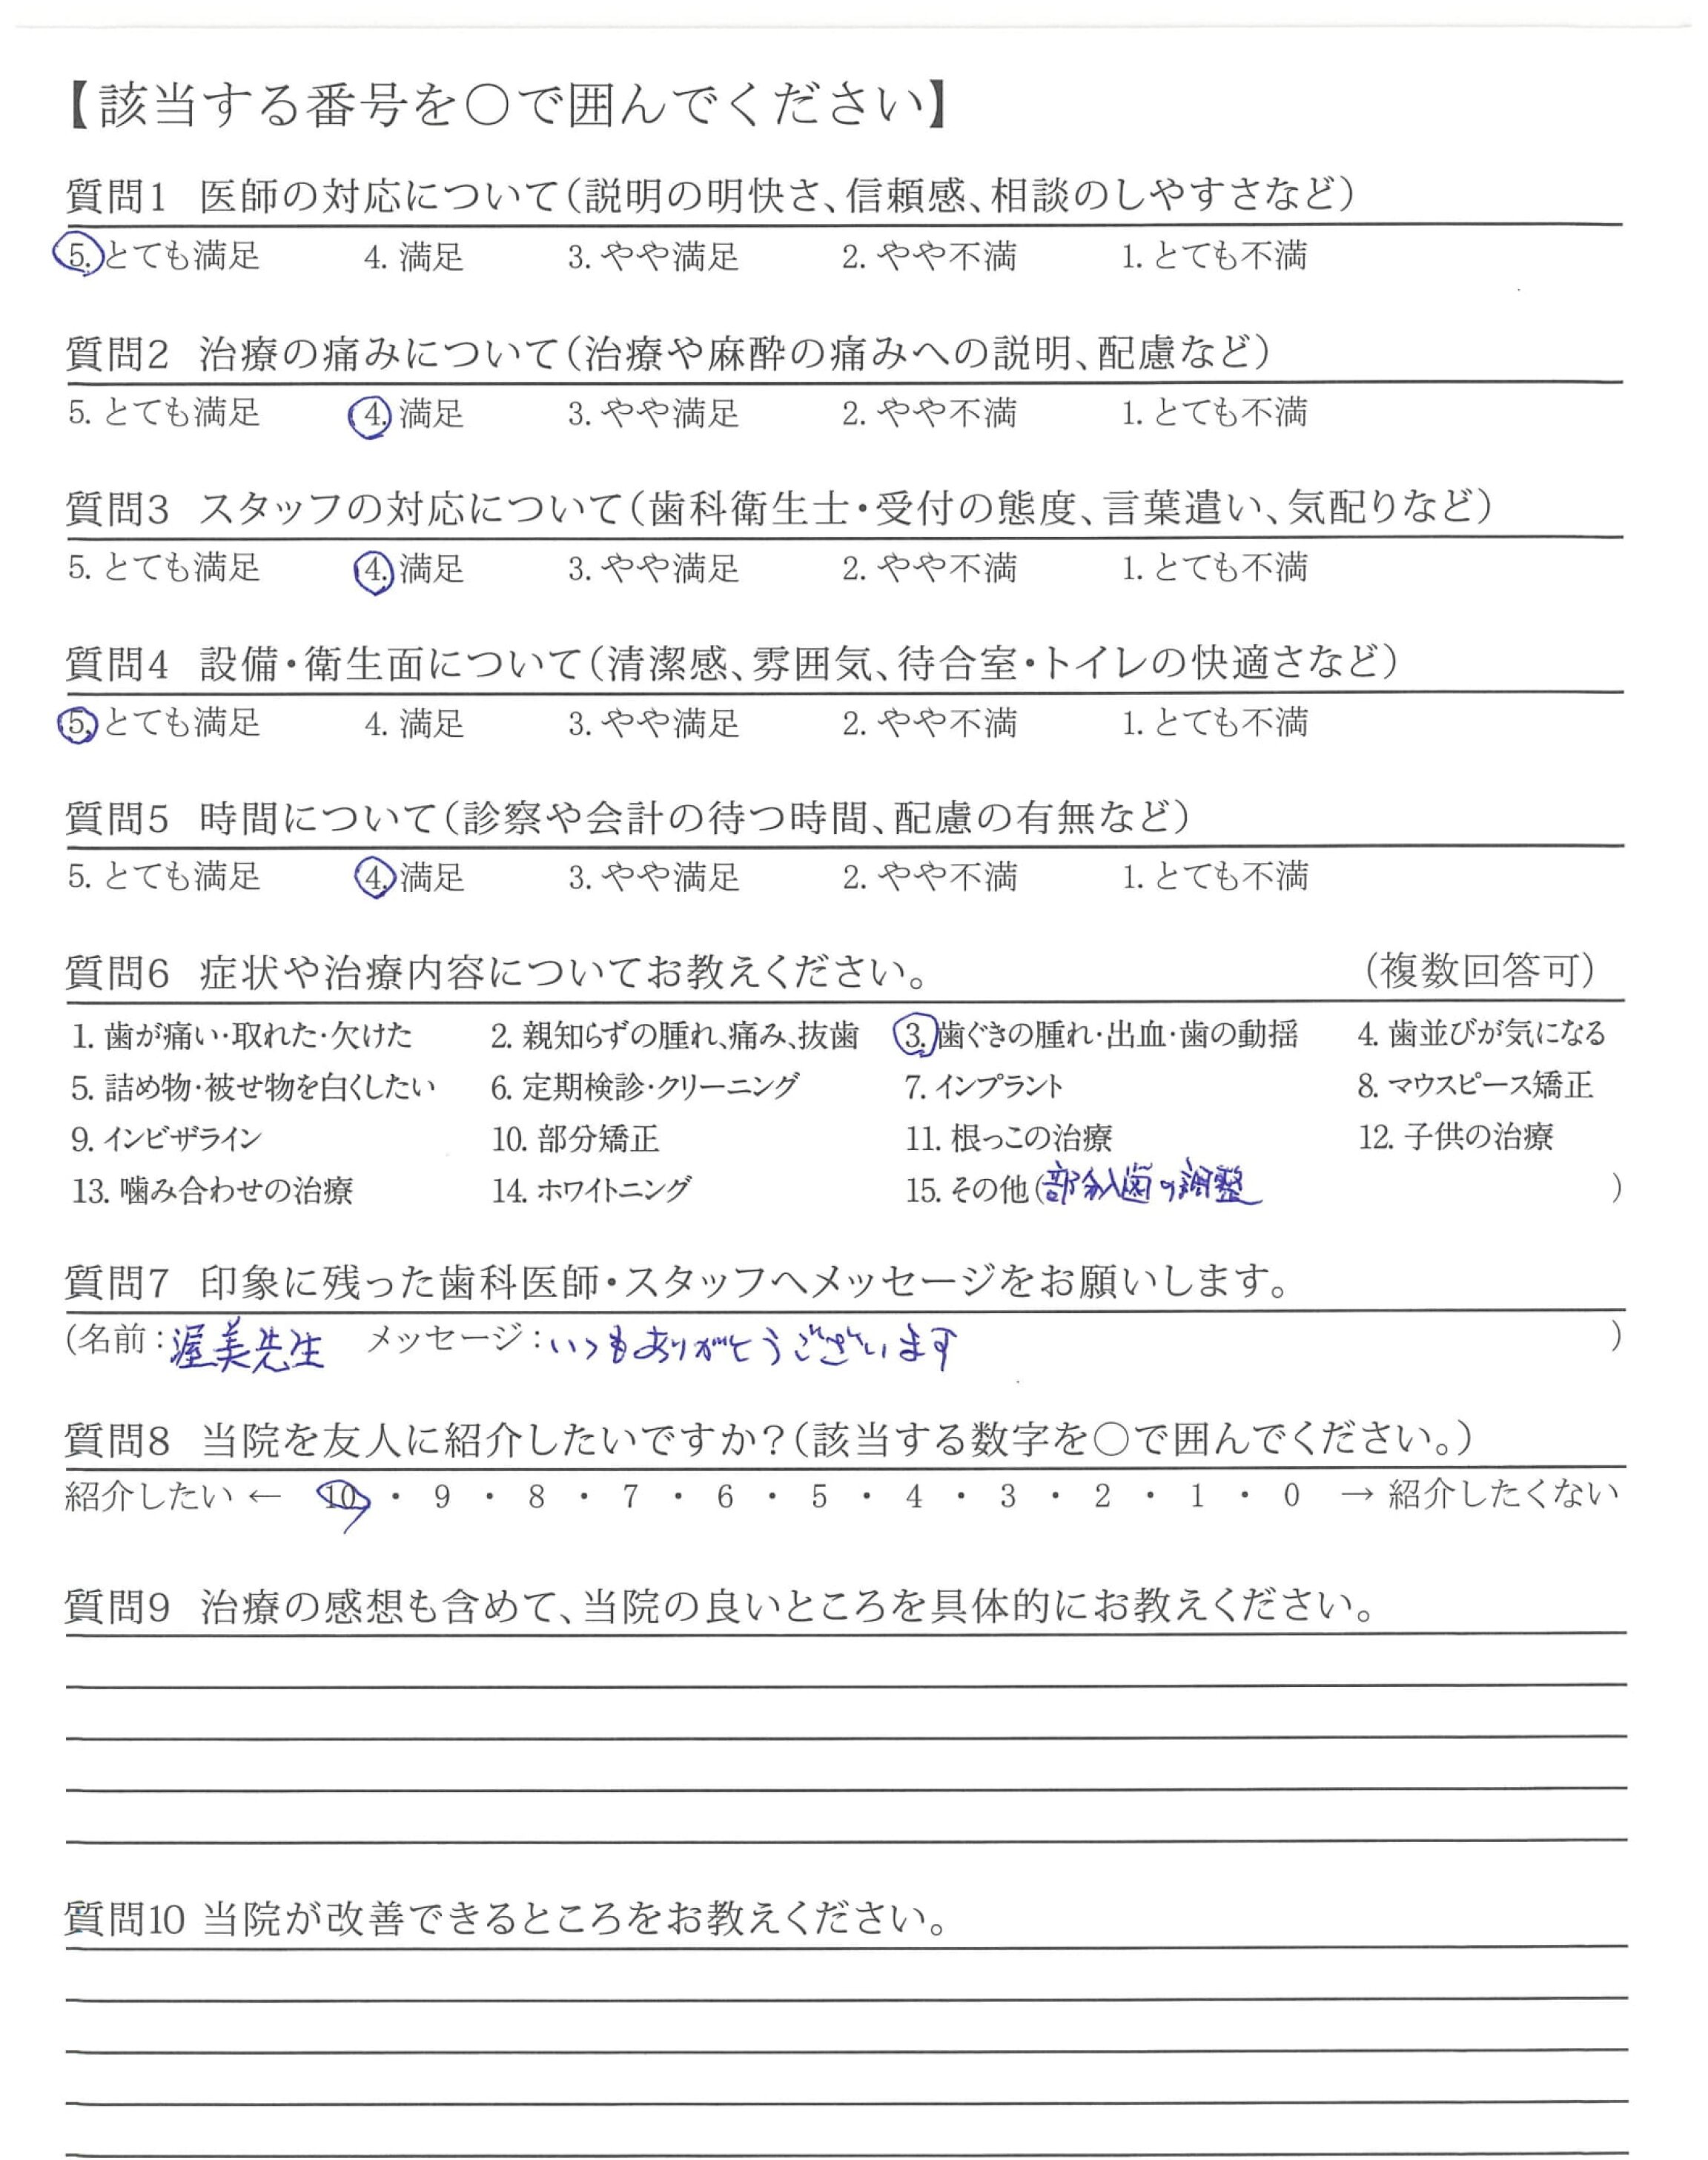 【該当する番号を○で囲んでください】
質問1 医師の対応について(説明の明快さ、信頼感、相談のしやすさなど)
5. とても満足 4. 満足 3. やや満足 2. やや不満 1. とても不満
質問2 治療の痛みについて(治療や麻酔の痛みへの説明、配慮など)
5. とても満足 4. 満足 3. やや満足 2. やや不満 1. とても不満
質問3 スタッフの対応について(歯科衛生士・受付の態度、言葉遣い、気配りなど)
5. とても満足 4. 満足 3. やや満足 2. やや不満 1. とても不満
質問4 設備・衛生面について(清潔感、雰囲気、待合室・トイレの快適さなど)
5. とても満足 4. 満足 3. やや満足 2. やや不満 1. とても不満
質問5 時間について(診察や会計の待つ時間、配慮の有無など)
5. とても満足 4. 満足 3. やや満足 2. やや不満 1. とても不満
質問6 症状や治療内容についてお教えください。 (複数回答可)
1. 歯が痛い・取れた・欠けた 2. 親知らずの腫れ、痛み、抜歯 3. 歯ぐきの腫れ・出血・歯の動揺 4. 歯並びが気になる
5. 詰め物・被せ物を白くしたい 6. 定期検診・クリーニング 7. インプラント 8. マウスピース矯正
9. インビザライン 10. 部分矯正 11. 根っこの治療 12. 子供の治療
13. 噛み合わせの治療 14. ホワイトニング 15. その他(部分入歯の調整 )
質問7 印象に残った歯科医師・スタッフへメッセージをお願いします。
(名前:渥美先生 メッセージ:いつもありがとうございます )
質問8 当院を友人に紹介したいですか?(該当する数字を○で囲んでください。)
紹介したい ← 10 ・ 9 ・ 8 ・ 7 ・ 6 ・ 5 ・ 4 ・ 3 ・ 2 ・ 1 ・ 0 → 紹介したくない
質問9 治療の感想も含めて、当院の良いところを具体的にお教えください。
質問10 当院が改善できるところをお教えください。